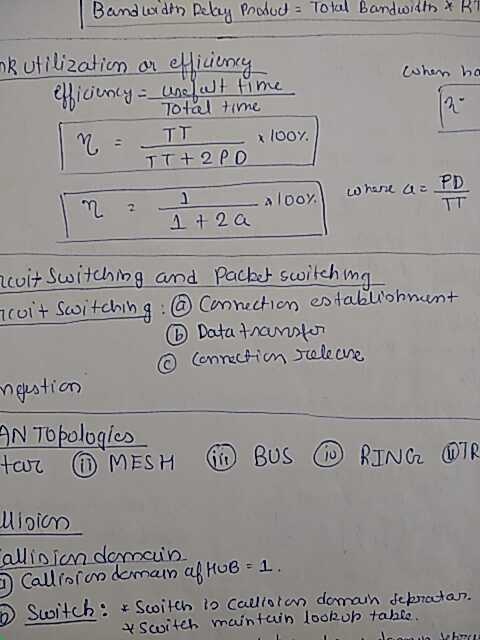 Bandwidth Delay Product = Total Bandwidth * RT
nk utilization or efficiency
efficiency = useful time / Total time
when ha
η = TT / TT + 2PD × 100%
η =
η = 1 / 1 + 2a × 100%
where a = PD / TT
rcuit Switching and Packet switching
rcuit Switching : (a) Connection establishment
(b) Data transfer
(c) Connection release
ngestion
AN Topologies
tar (ii) MESH (iii) BUS (iv) RING (v) TR
llision
Collision domain
Collision domain of HUB = 1.
(b) Switch : * Switch is Collision domain seprator.
* Switch maintain lookup table.